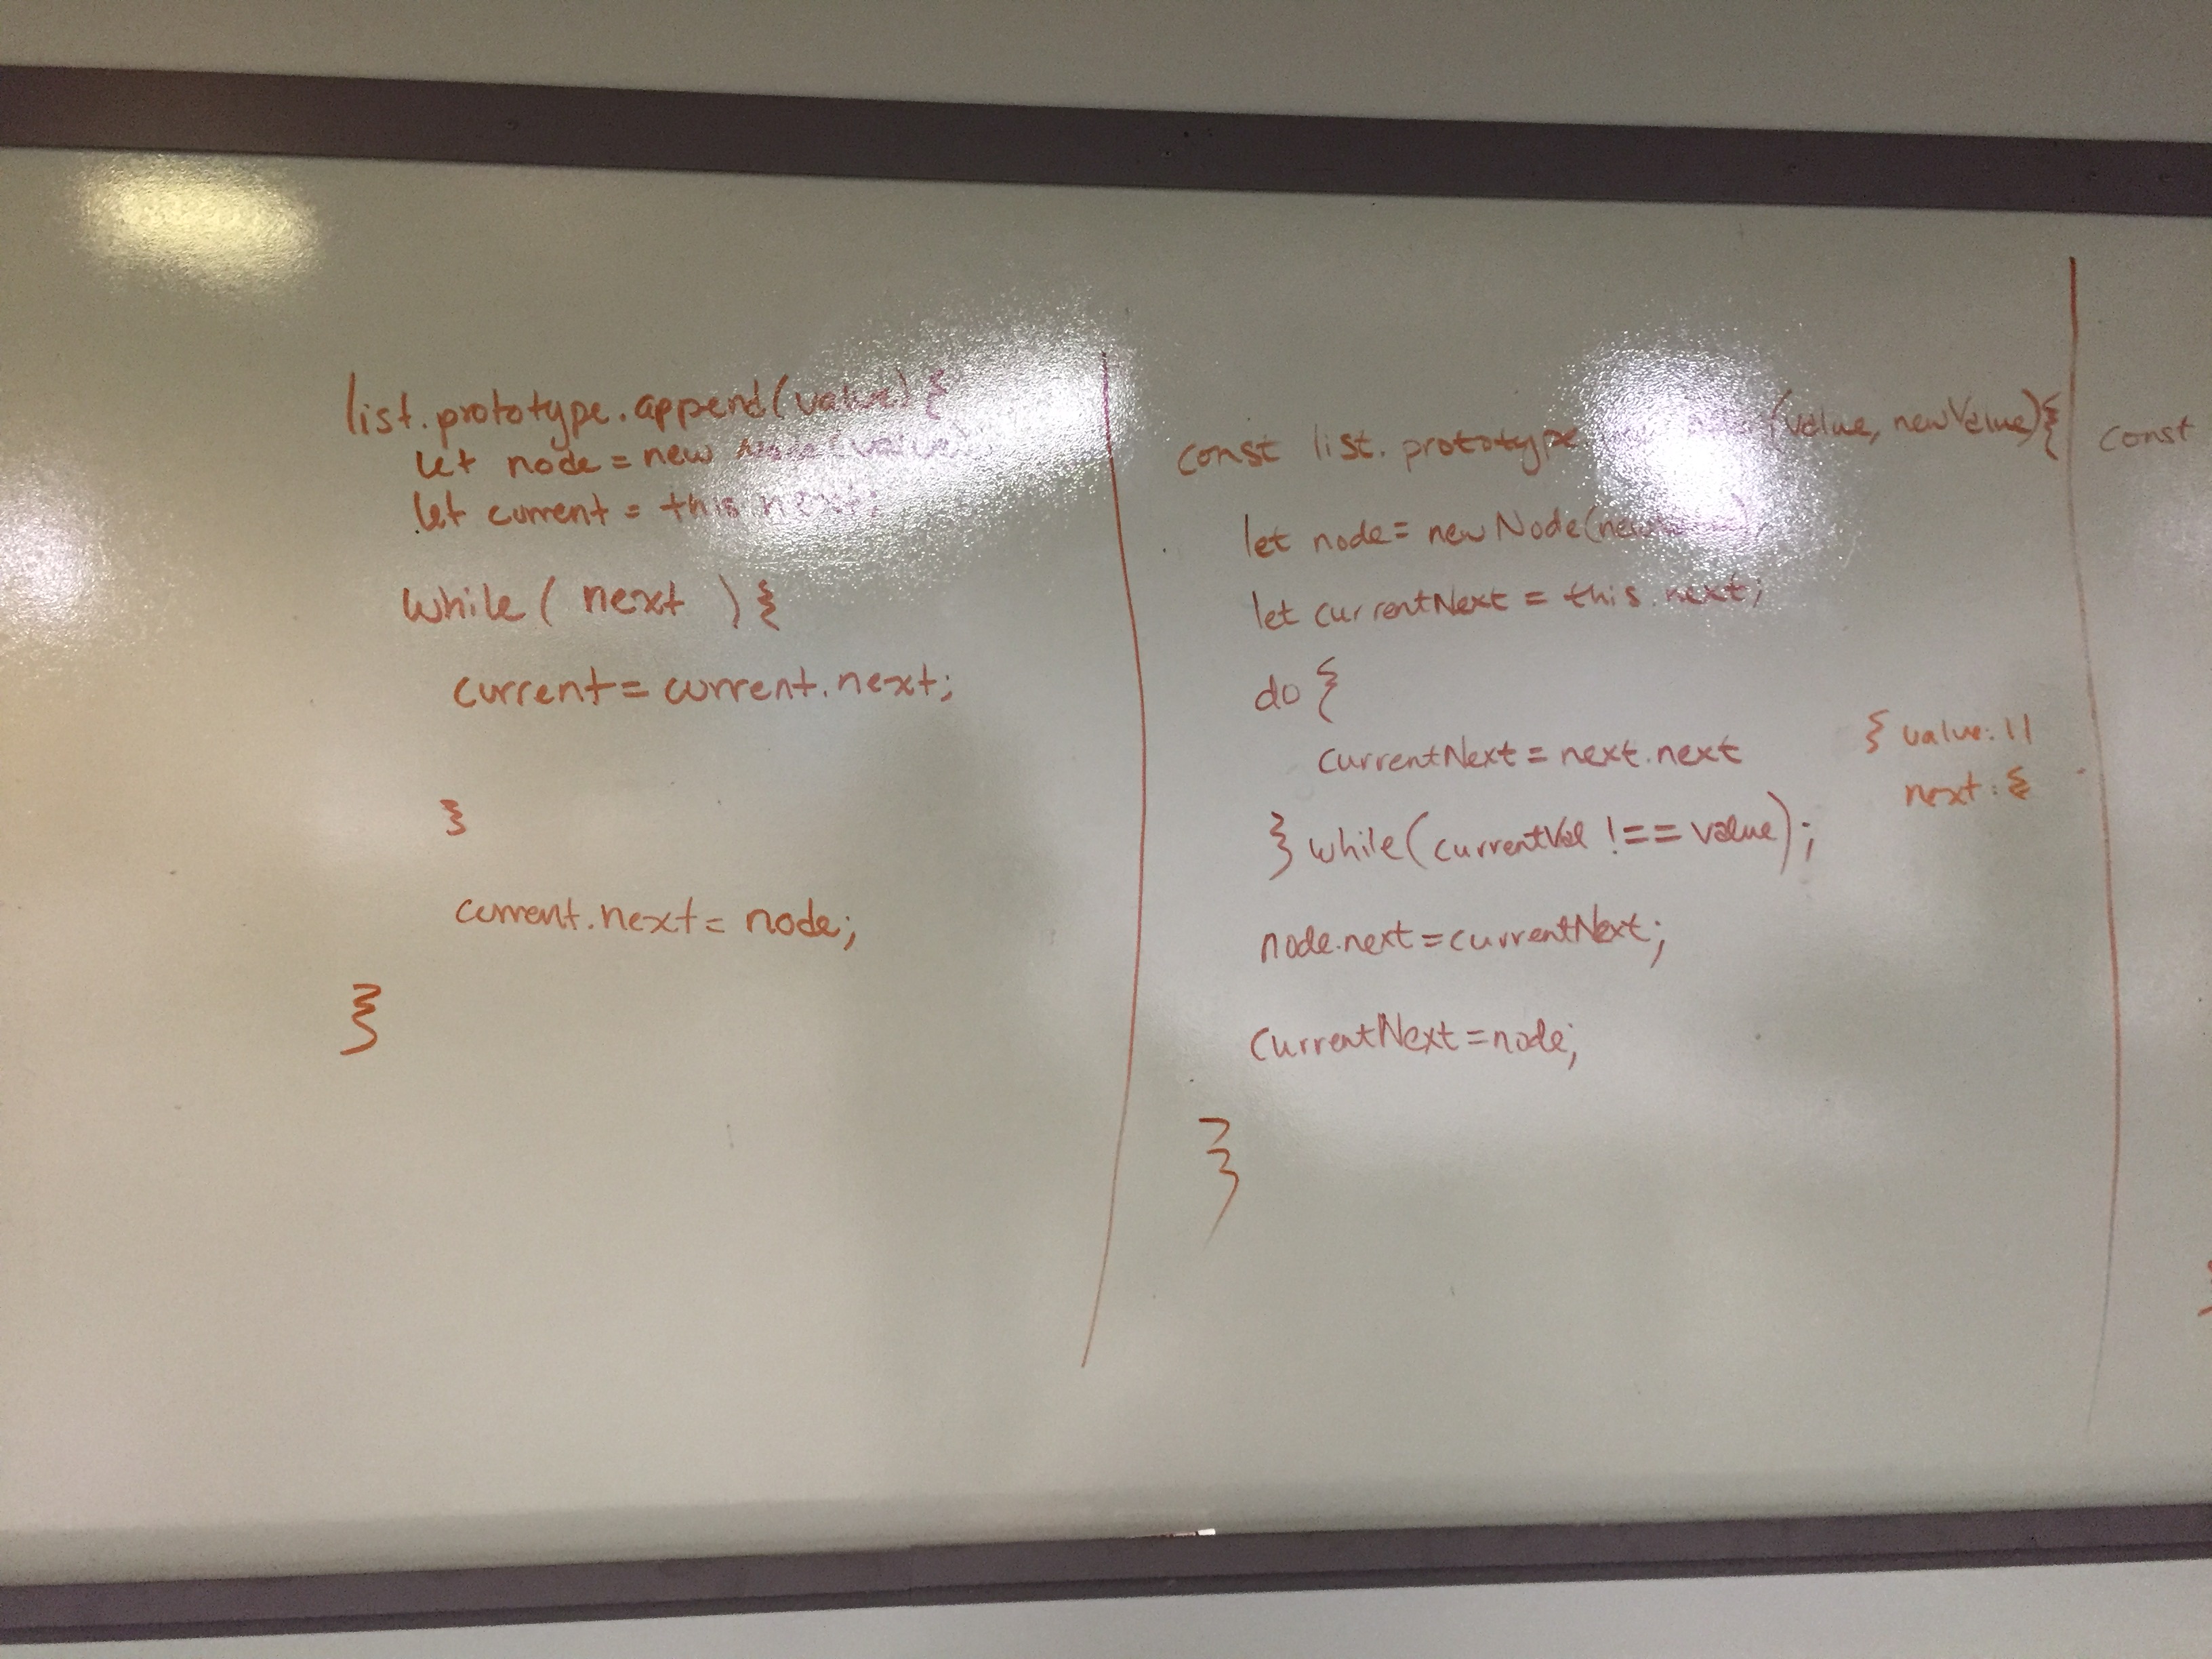 list.prototype.append(value) {
let node = new Node(value)
let current = this.next;
while ( next ) {
current = current.next;
}
current.next = node;
}
const list. prototype (value, newValue) {
let node = new Node(
let currentNext = this.next;
do {
currentNext = next.next
} while (currentVal !== value);
node.next = currentNext;
currentNext = node;
}
{ value: 11
next: {
const